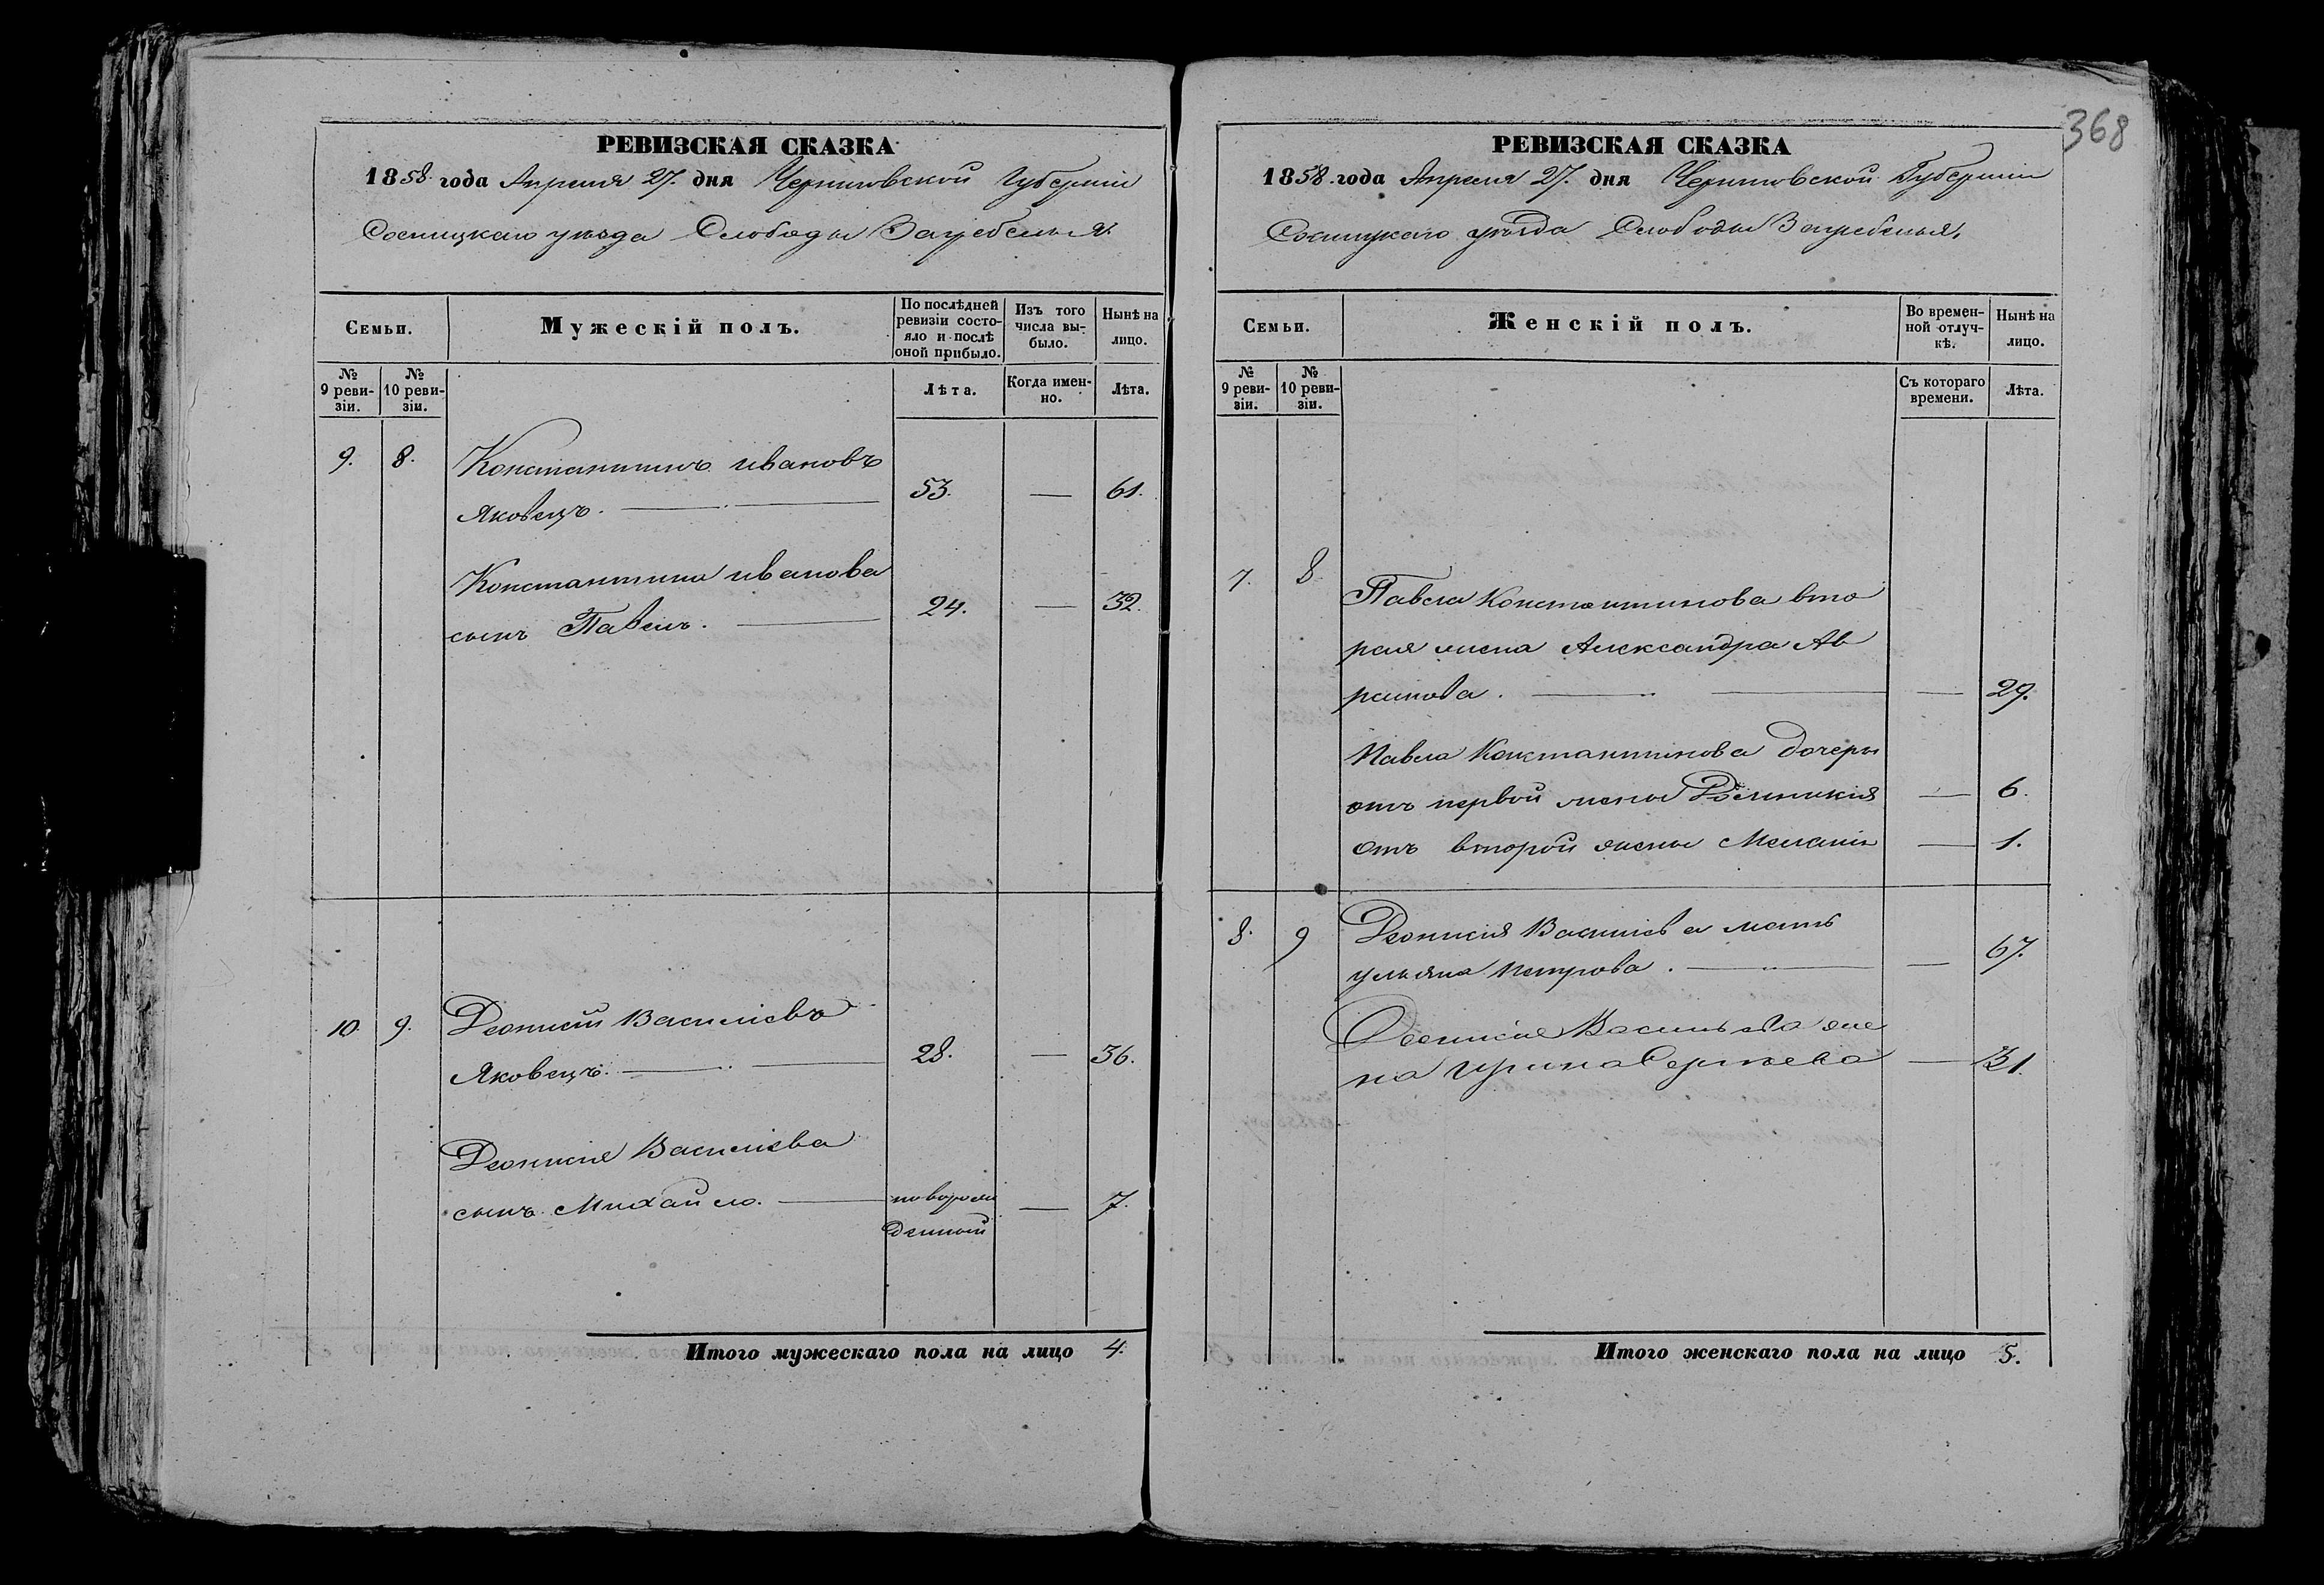 368
РЕВИЗСКАЯ СКАЗКА
1858 года Апреля 27. дня Черниговской Губернiи
Сосницкаго уѣзда Слободы Загребелья.
Семьи.
Мужескiй полъ.
По послѣдней ревизiи состояло и послѣ оной прибыло.
Изъ того числа выбыло.
Нынѣ на лицо.
№ 9 ревизiи.
№ 10 ревизiи.
Лѣта.
Когда именно.
Лѣта.
9. 8. Константинъ ивановъ
Яковецъ. — 53. — 61.
Константина иванова
сынъ Павелъ. — 24. — 32.
10. 9. Деонисiй Василiевъ
Яковецъ. — 28. — 36.
Деонисiя Василiева
сынъ Михайло. — новорож
денный — 7.
Итого мужескаго пола на лицо 4.
РЕВИЗСКАЯ СКАЗКА
1858 года Апреля 27. дня Черниговской Губернiи
Сосницкаго уѣзда Слободы Загребелья.
Семьи.
Женскiй полъ.
Во временной отлучкѣ.
Нынѣ на лицо.
№ 9 ревизiи.
№ 10 ревизiи.
Съ котораго времени.
Лѣта.
7. 8 Павла Константинова вто
рая жена Александра Ав
рамова. — — 29.
Павла Константинова дочеры
отъ первой жены — 6.
Отъ второй жены Меланiя — 1.
8. 9 Деонисiя Василiева мать
ульяна петрова. — — 67.
Деонисiя Васильева же
на Ирина Сергѣева — 31.
Итого женскаго пола на лицо 5.